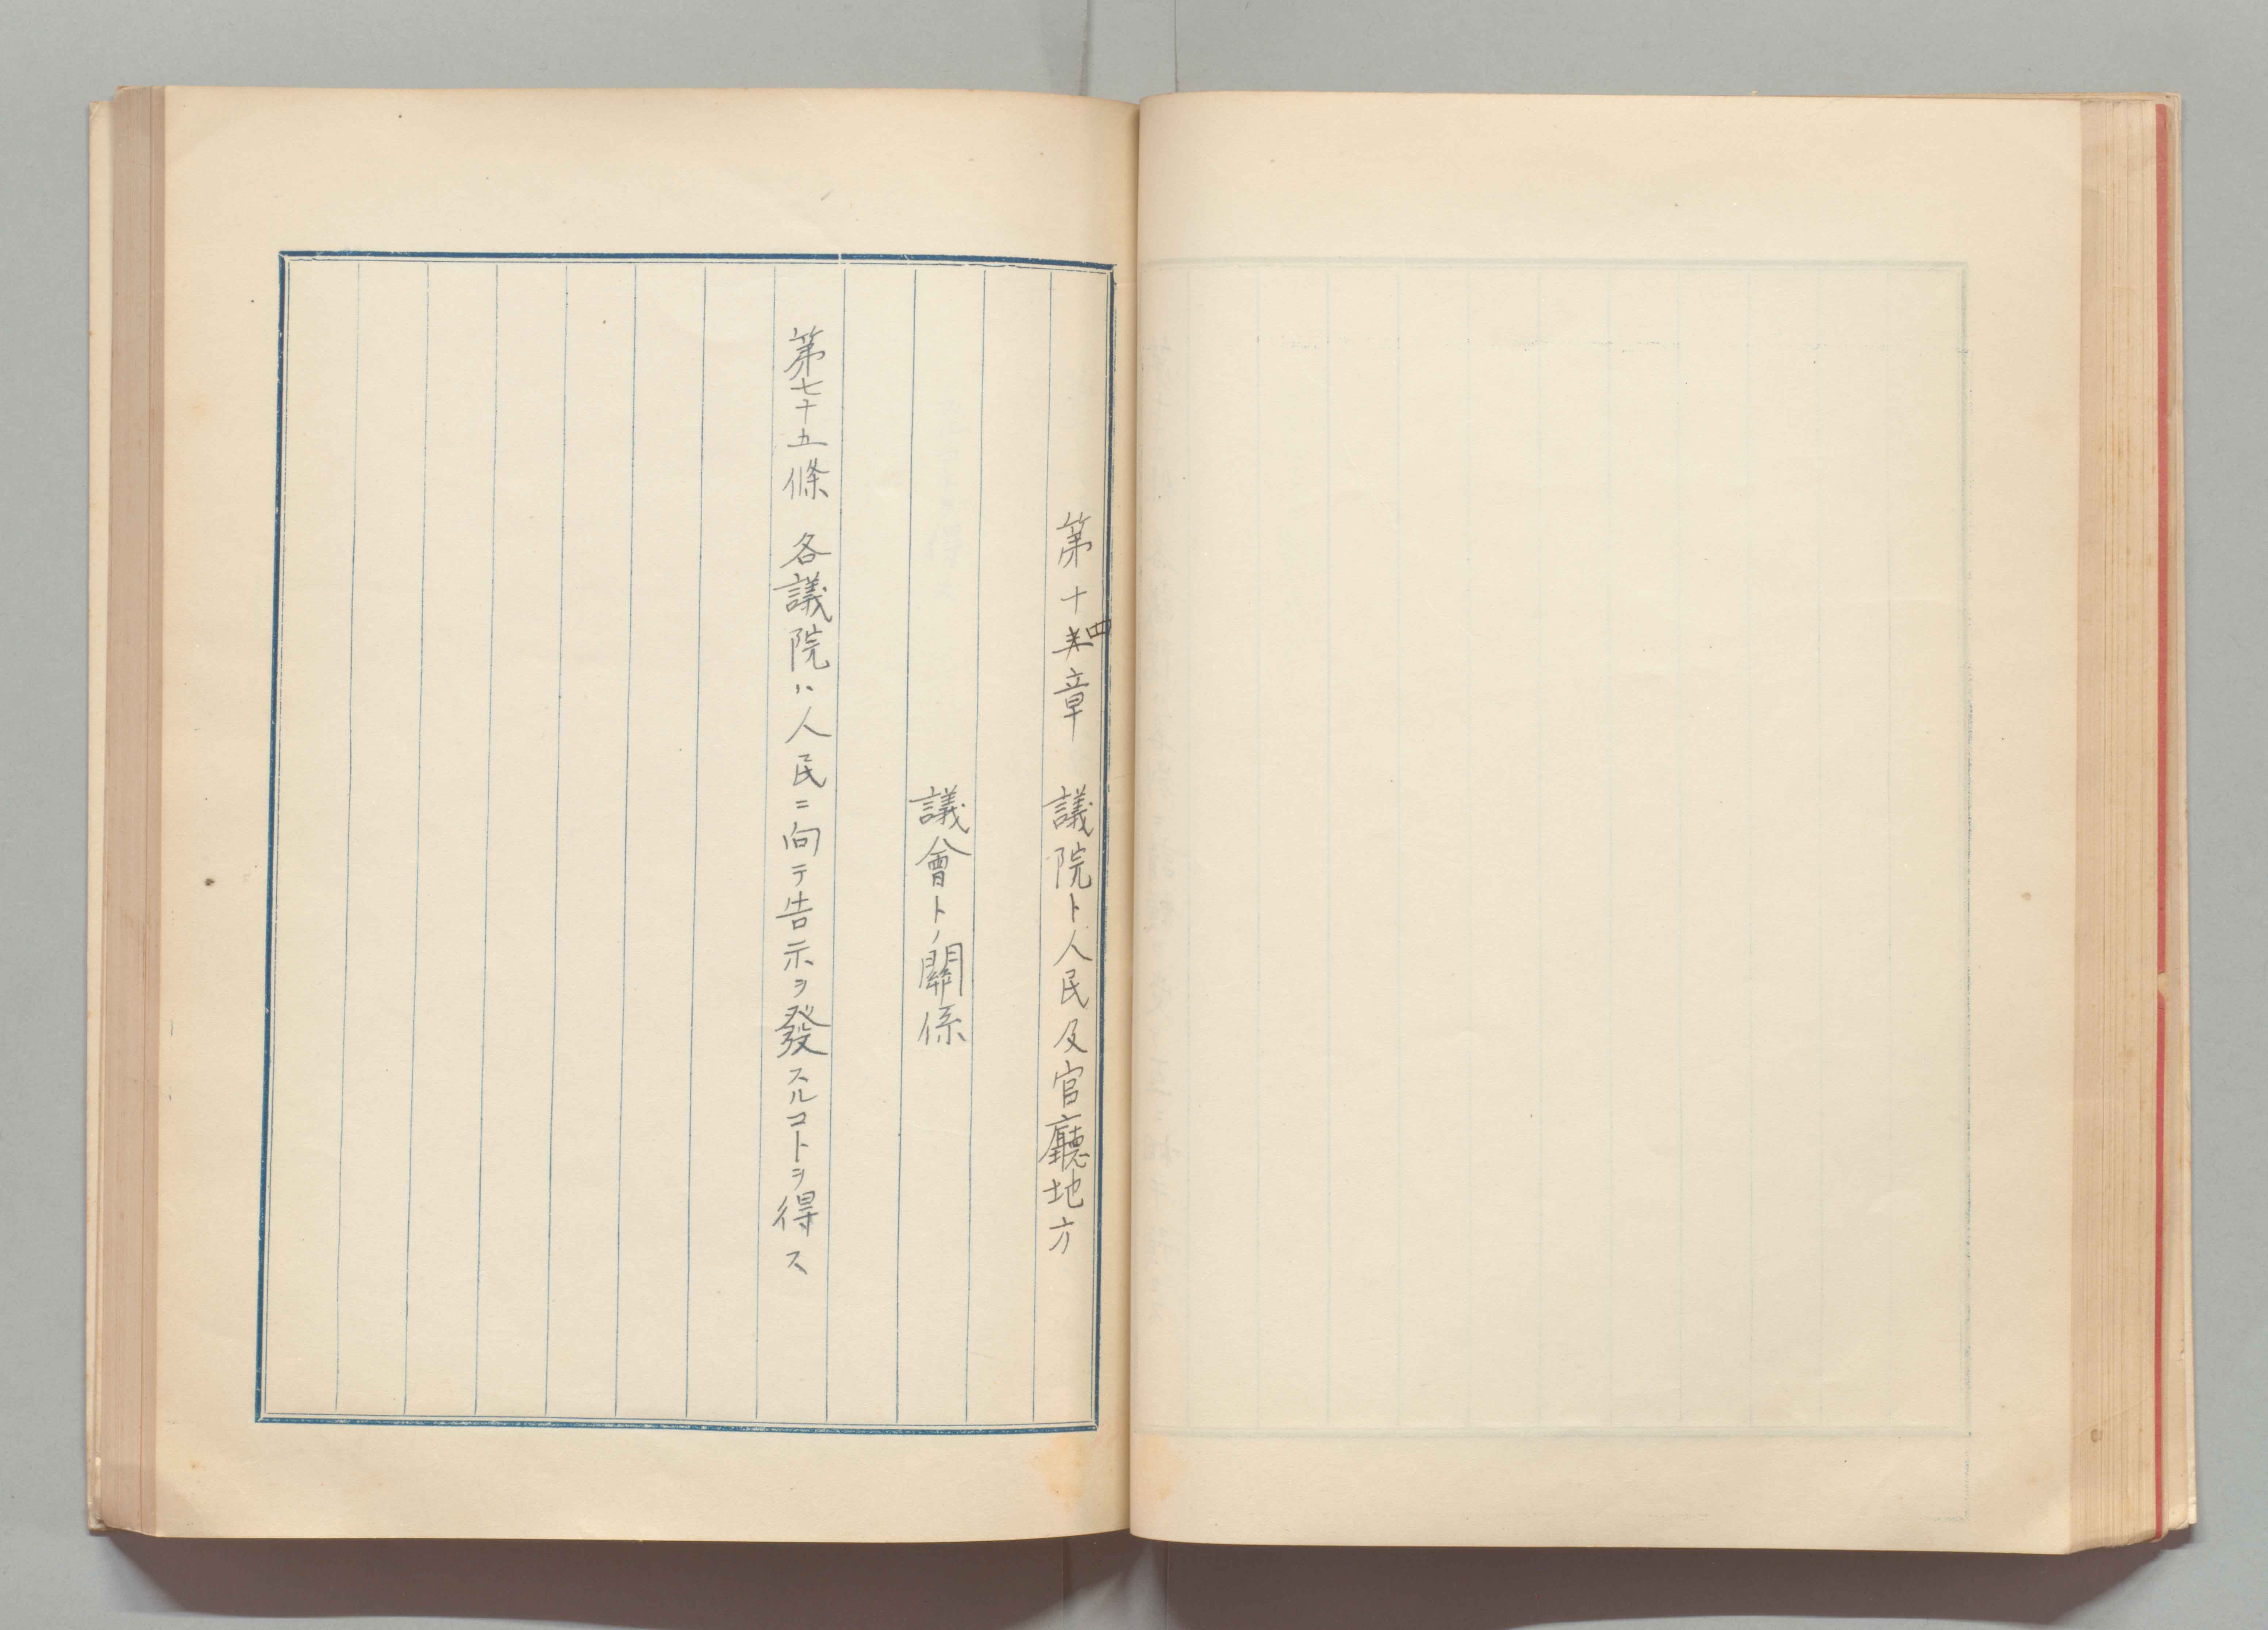 第十四章　議院ト人民及官廳地方
議會トノ關係
第七十五條　各議院ハ人民ニ向テ告示ヲ發スルコトヲ得ス